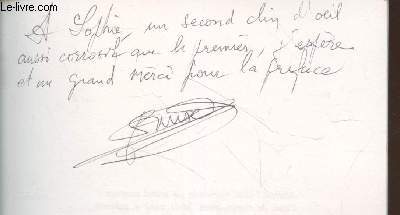 le-livre.com
A Sophie, un second clin d'oeil
aussi corrosif que le premier, j'espère
et un grand merci pour la préface